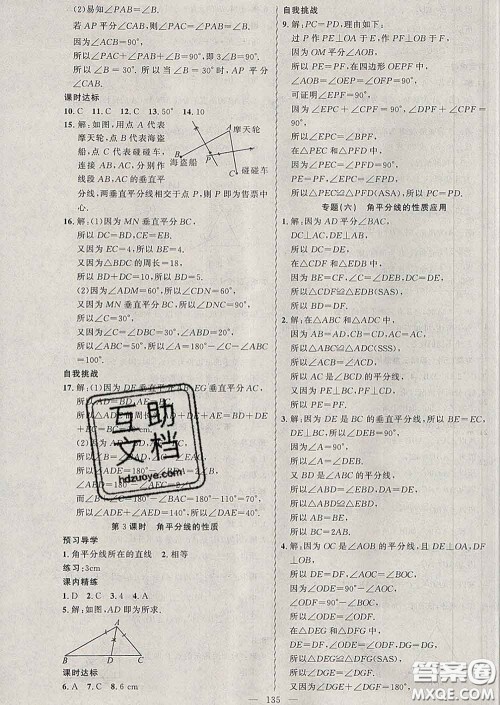 (2)易知∠PAB=∠B.
若 AP 平分∠CAB,则∠PAB=∠PAC=∠B.
所以∠PAB+∠PAC+∠B=90°,
所以∠B=30°. 所以当∠B=30°时,AP 平分
∠CAB.
课时达标
10. C 11. C 12. C 13. 50° 14. 10
15. 解:如图,用点 A 代表
摩天轮,点 B 代表海盗
船,点 C 代表碰碰车,
连接 AB,AC,分别作
线段 AB,AC 的垂直平
分线,两垂直平分线相交于点 P,则 P 即为售票中
心.
摩天轮
A
B
海盗船
P
C
碰碰车
16. 解:(1)因为 MN 垂直平分 BC,
所以 DC=BD,CE=EB.
又因为 EC=4,所以 BE=4.
又因为△BDC 的周长=18,
所以 BD+DC=10,所以 BD=5.
(2)因为∠ADM=60°,所以∠CDN=60°.
又因为 MN 垂直平分 BC,所以∠DNC=90°,
所以∠C=30°.
又因为∠C=∠DBC=30°,∠ABD=20°,
所以∠ABC=50°,
所以∠A=180°-∠C-∠ABC=100°.
自我挑战
17. 解:(1)因为 DE 垂直平分
EG 垂直平分 AC,
+DE
+EC=BC
(2)因为
所以∠
所以∠ADE=180°-2∠
所以∠AED=180°-2∠
而∠B+∠C=180°-∠BAC=
所以∠DAE=180°-
第 3 课时 角平分线的性质
预习导学
1. 角平分线所在的直线 2. 相等
练习:3cm
课内精练
1. D 2. C 3. 4 4. C
5. 解:如图,AD 即为所求.
A
B
D
C
课时达标
6. A 7. C 8. 6 cm
自我挑战
9. 解:PC=PD,理由如下:
过 P 作 PE⊥OA 于 E,作 PF⊥OB 于
因为 OM 平分∠AOB,
所以 PE=PF,在四边形 OEPF 中,
因为∠AOB=∠OEP=∠OFP=90°,
可证明∠EPF=90°,
因为∠EPC+∠CPF=90°,∠DPF+∠CPF
=90°,
所以∠EPC=∠DPF,
所以△EPC≌△FPD(ASA),所以 PC=PD.
专题(六) 角平分线的性质应用
1. 解:因为 AD 平分∠BAC,
DC⊥AF,DE⊥AB,
所以 DC=DE,
在△CDF 和△EDB 中,
因为 BE=CF,∠DEB=∠C,DE=DC,
所以△CDF≌△EDB(SAS),
所以 DF=DB.
2. 解:在△ABC 和△ADC 中,
因为 AB=AD,CB=CD,AC=AC,
所以△ABC≌△ADC(SSS),
所以∠BCA=∠DCA,
所以 AC 是∠BCD 的平分线.
又因为 PE⊥BC,PF⊥CD,
所以 PE=PF.
3. 解:因为 DE 是 BC 的垂直平分线,所以 BE=EC,
DE⊥BC,
因为∠A=90°,
所以 DA⊥AB.
又 BD 是∠ABC 的平分线,
所以 DA=DE.
又因为 BD=BD,
所以△ABD≌△EBD,
所以 AB=BE,
4. 解:因为 OC 是∠AOB 的平分线,DE⊥AO,
DF⊥BO,
所以 DE=DF,∠AOC=∠BOC,
因为∠OED=∠OFD=90°,
所以∠AOC+∠EDO=∠BOC+∠FDO=90°,
所以∠EDG=∠FDG,
在△DGE 和△DGF 中,
因为 DE=DF,∠EDG=∠FDG,DG=DG,
所以△DGE≌△DGF(SAS),
所以∠DGE=∠DGF=180°÷2=90°,
互助文档
hdzuoye.com
135
答案圈
MXQE.COM